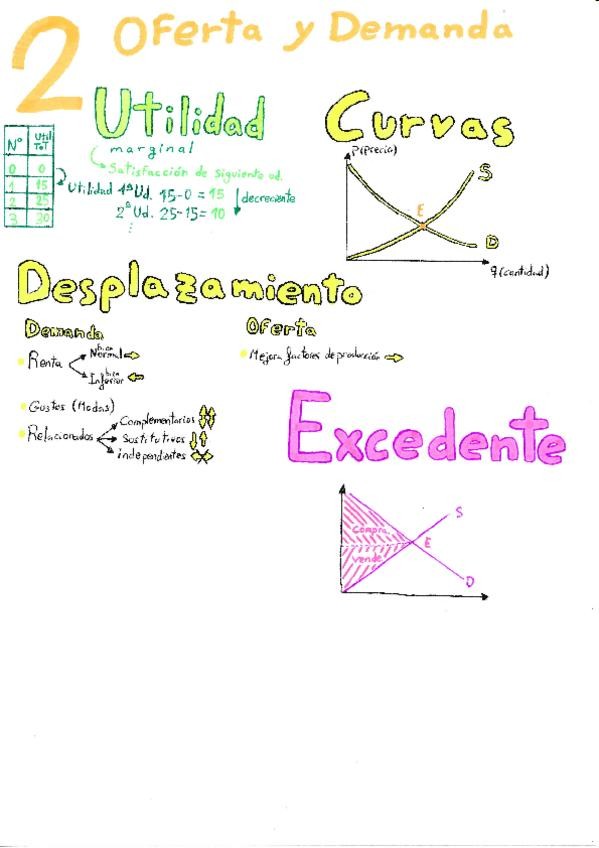 2 Oferta y Demanda
Utilidad
marginal
Satisfacción de siguiente ud.
Nº Util Tot
0 0
1 15
2 25
3 30
Utilidad 1ª Ud. 15-0 = 15
2ª Ud. 25-15 = 10
⋮
decreciente
Curvas
P (Precio)
S
E
D
q (cantidad)
Desplazamiento
Demanda
Renta
bien
Normal
bien
Inferior
Gustos (Modas)
Relacionados
Complementarios
Sustitutivos
independientes
Oferta
Mejora factores de producción
Excedente
S
Compra.
E
vende
D